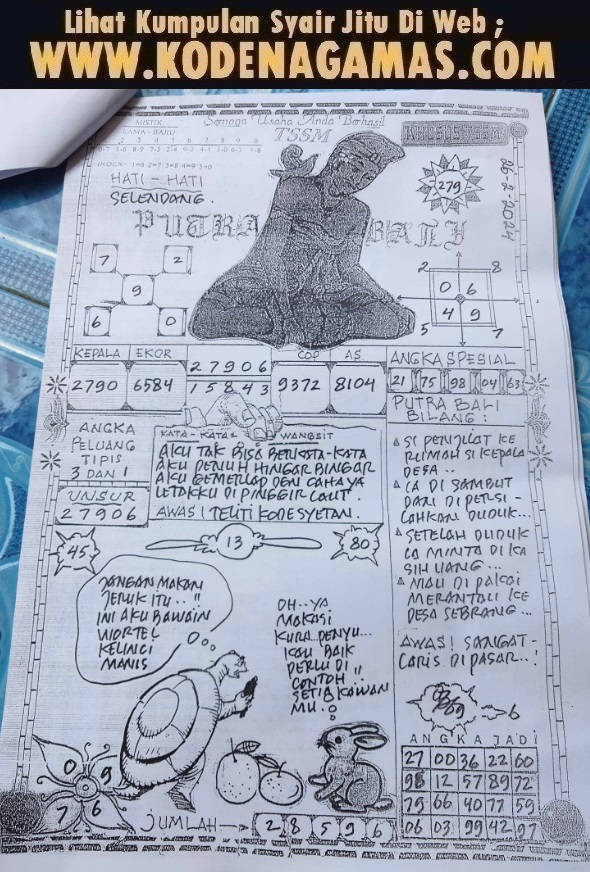 Lihat Kumpulan Syair Jitu Di Web ;
WWW.KODENAGAMAS.COM
MISTIK
Semoga Usaha Anda Berhasil
LAMA - BARU
TSSM
HATI - HATI
SELENDANG.
PUTRA BALI
279
26-2-2024
7 2
9
6 0
2 8
0 6
4 9
5 7
KEPALA EKOR
2790 6584
27906
15843
COP AS
9372 8104
ANGKA SPESIAL
21 75 98 04 63
ANGKA
PELUANG
TIPIS
3 DAN 1
UNSUR
27906
KATA - KATA WANGSIT
AKU TAK BISA BERKATA-KATA
AKU PENUH HINGAR BINGAR
AKU GEMERLAP DENI CAHAYA
LETAKKU DI PINGGIR LAUT.
AWAS! TELITI KODE SYETAN.
PUTRA BALI
BILANG :
SI PENJILAT KE
RUMAH SI KEPALA
DESA ..
IA DI SAMBUT
DAN DI PERSI -
LAHKAN DUDUK...
SETELAH DUDUK
IA MINTA DI KA
SIH UANG ...
MAU DI PAKAI
MERANTAU KE
DESA SEBRANG ...
AWAS! SANGAT -
LARIS DI PASAR..!
45
13
80
JANGAN MAKAN
JERUK ITU.."
INI AKU BAWAIN
WORTEL
KELINCI
MANIS
OH..YA
MAKASI
KURA PENYU...
KAU BAIK
PERLU DI
CONTOH"
SETIA KAWAN
MU.
6
ANGKA JADI
27 00 36 22 60
98 12 57 89 72
79 66 40 77 59
06 03 99 42 97
0 9
7 6
JUMLAH
2 8 5 9 6